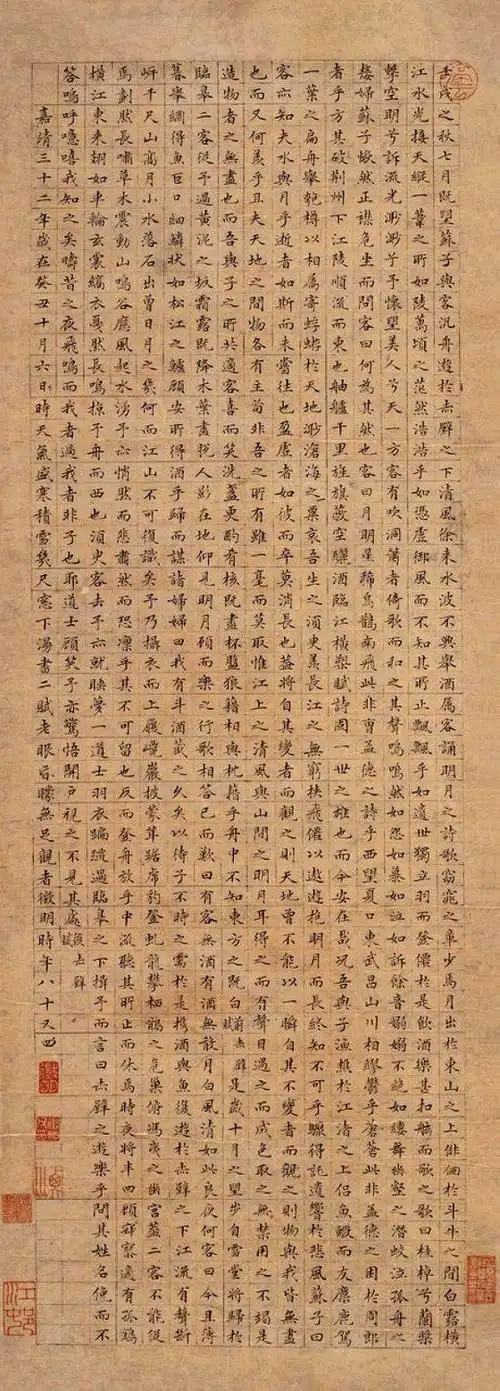 壬戌之秋七月既望蘇子與客汎舟遊於赤壁之下清風徐來水波不興舉酒屬客誦明月之詩歌窈窕之章少焉月出於東山之上徘徊於斗牛之間白露橫
江水光接天縱一葦之所如陵萬頃之茫然浩浩乎如憑虛御風而不知其所止飄飄乎如遺世獨立羽而登僊於是飲酒樂甚扣舷而歌之歌曰桂棹兮蘭槳
擊空明兮訴流光渺渺兮予懷望美人兮天一方客有吹洞簫者倚歌而和之其聲嗚嗚然如怨如慕如泣如訴餘音嫋嫋不絕如縷舞幽壑之潛蛟泣孤舟之
嫠婦蘇子愀然正襟危坐而問客曰何為其然也客曰月明星稀烏鵲南飛此非曹孟德之詩乎西望夏口東武昌山川相繆鬱乎蒼蒼此非孟德之困於周郎
者乎方其破荊州下江陵順流而東也舳艫千里旌旗蔽空釃酒臨江橫槊賦詩固一世之雄也而今安在哉況吾與子漁樵於江渚之上侶魚鰕而友麋鹿駕
一葉之扁舟舉匏樽以相屬寄蜉蝣於天地渺滄海之粟哀吾生之須臾羨長江之無窮挾飛僊以遨遊抱明月而長終知不可乎驟得託遺響於悲風蘇子曰
客亦知夫水與月乎逝者如斯而未嘗往也盈虛者如彼而卒莫消長也蓋將自其變者而觀之則天地曾不能以一瞬自其不變者而觀之則物與我皆無盡
也而又何羨乎且夫天地之間物各有主苟非吾之所有雖一毫而莫取惟江上之清風與山間之明月耳得之而有聲目遇之而成色取之無禁用之不竭是
造物者之無盡也而吾與子之所共適客喜而笑洗盞更酌肴核既盡杯盤狼藉相與枕藉乎舟中不知東方之既白 前赤壁賦 是歲十月之望步自雪堂將歸於
臨皋二客從予過黃泥之坂霜露既降木葉盡脫人影在地仰見明月顧而樂之行歌相答已而歎曰有客無酒有酒無殽月白風清如此良夜何客曰今且薄
暮舉網得魚巨口細鱗狀如松江之鱸顧安所得酒乎歸而謀諸婦婦曰我有斗酒藏之久矣以待子不時之需於是攜酒與魚復遊於赤壁之下江流有聲斷
岸千尺山高月小水落石出曾日月之幾何而江山不可復識矣予乃攝衣而上履巉巖披蒙茸踞虎豹登虬龍攀栖鶻之危巢俯馮夷之幽宮蓋二客不能從
焉劃然長嘯草木震動山鳴谷應風起水湧予亦悄然而悲肅然而恐凜乎其不可留也反而登舟放乎中流聽其所止而休焉時夜將半四顧寂寥適有孤鶴
橫江東來翅如車輪玄裳縞衣戛然長鳴掠予舟而西也須臾客去予亦就睡夢一道士羽衣蹁躚過臨皋之下揖予而言曰赤壁之遊樂乎問其姓名俛而不
答嗚呼噫嘻我知之矣疇昔之夜飛鳴而過我者非子也耶道士顧笑予亦驚悟開戶視之不見其處 後赤壁賦
嘉靖三十二年歲在癸丑十月六日時天氣盛寒積雪幾尺窓下漫書二賦老眼昏矇無足觀者徵明時年八十又四